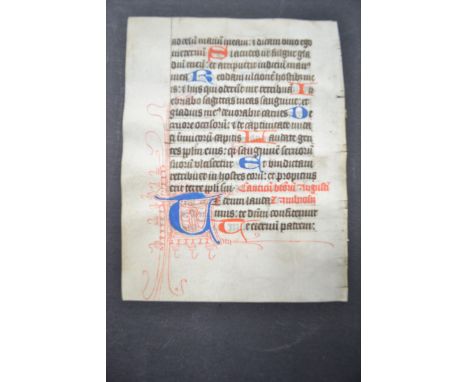 ad celū manū meam: ⁊ dicam vivo ego
in eternū Si acuero ut fulgur gla
diū meū: et arripuerit iudiciū man⁹
mea Reddam ultionē hostib⁹ me
is: ⁊ hiis qui oderūt me retribuā In
ebriabo sagittas meas sanguine: et
gladius me⁹ devorabit carnes De
cruore occisorū: ⁊ de captivitate nuda
ti inimicorū capitis Laudate gen
tes plēm eius: q̄ sanguinē servorū
suorū ulciscetur Et vindictam
retribuet in hostes eorū: et propicius
erit terre ppli sui Canticū btōrū Augusti
Te deum lauda ⁊ ambrosii
mus: te dn̄m confitemur
Te eternū patrem: